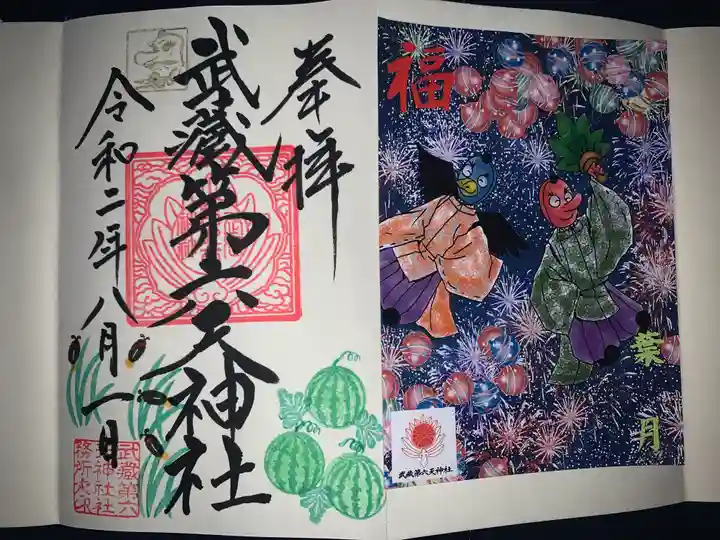 奉拝
武蔵第六天神社
令和二年八月一日
武蔵第六
神社社
務所
福
葉月
武蔵第六天神社